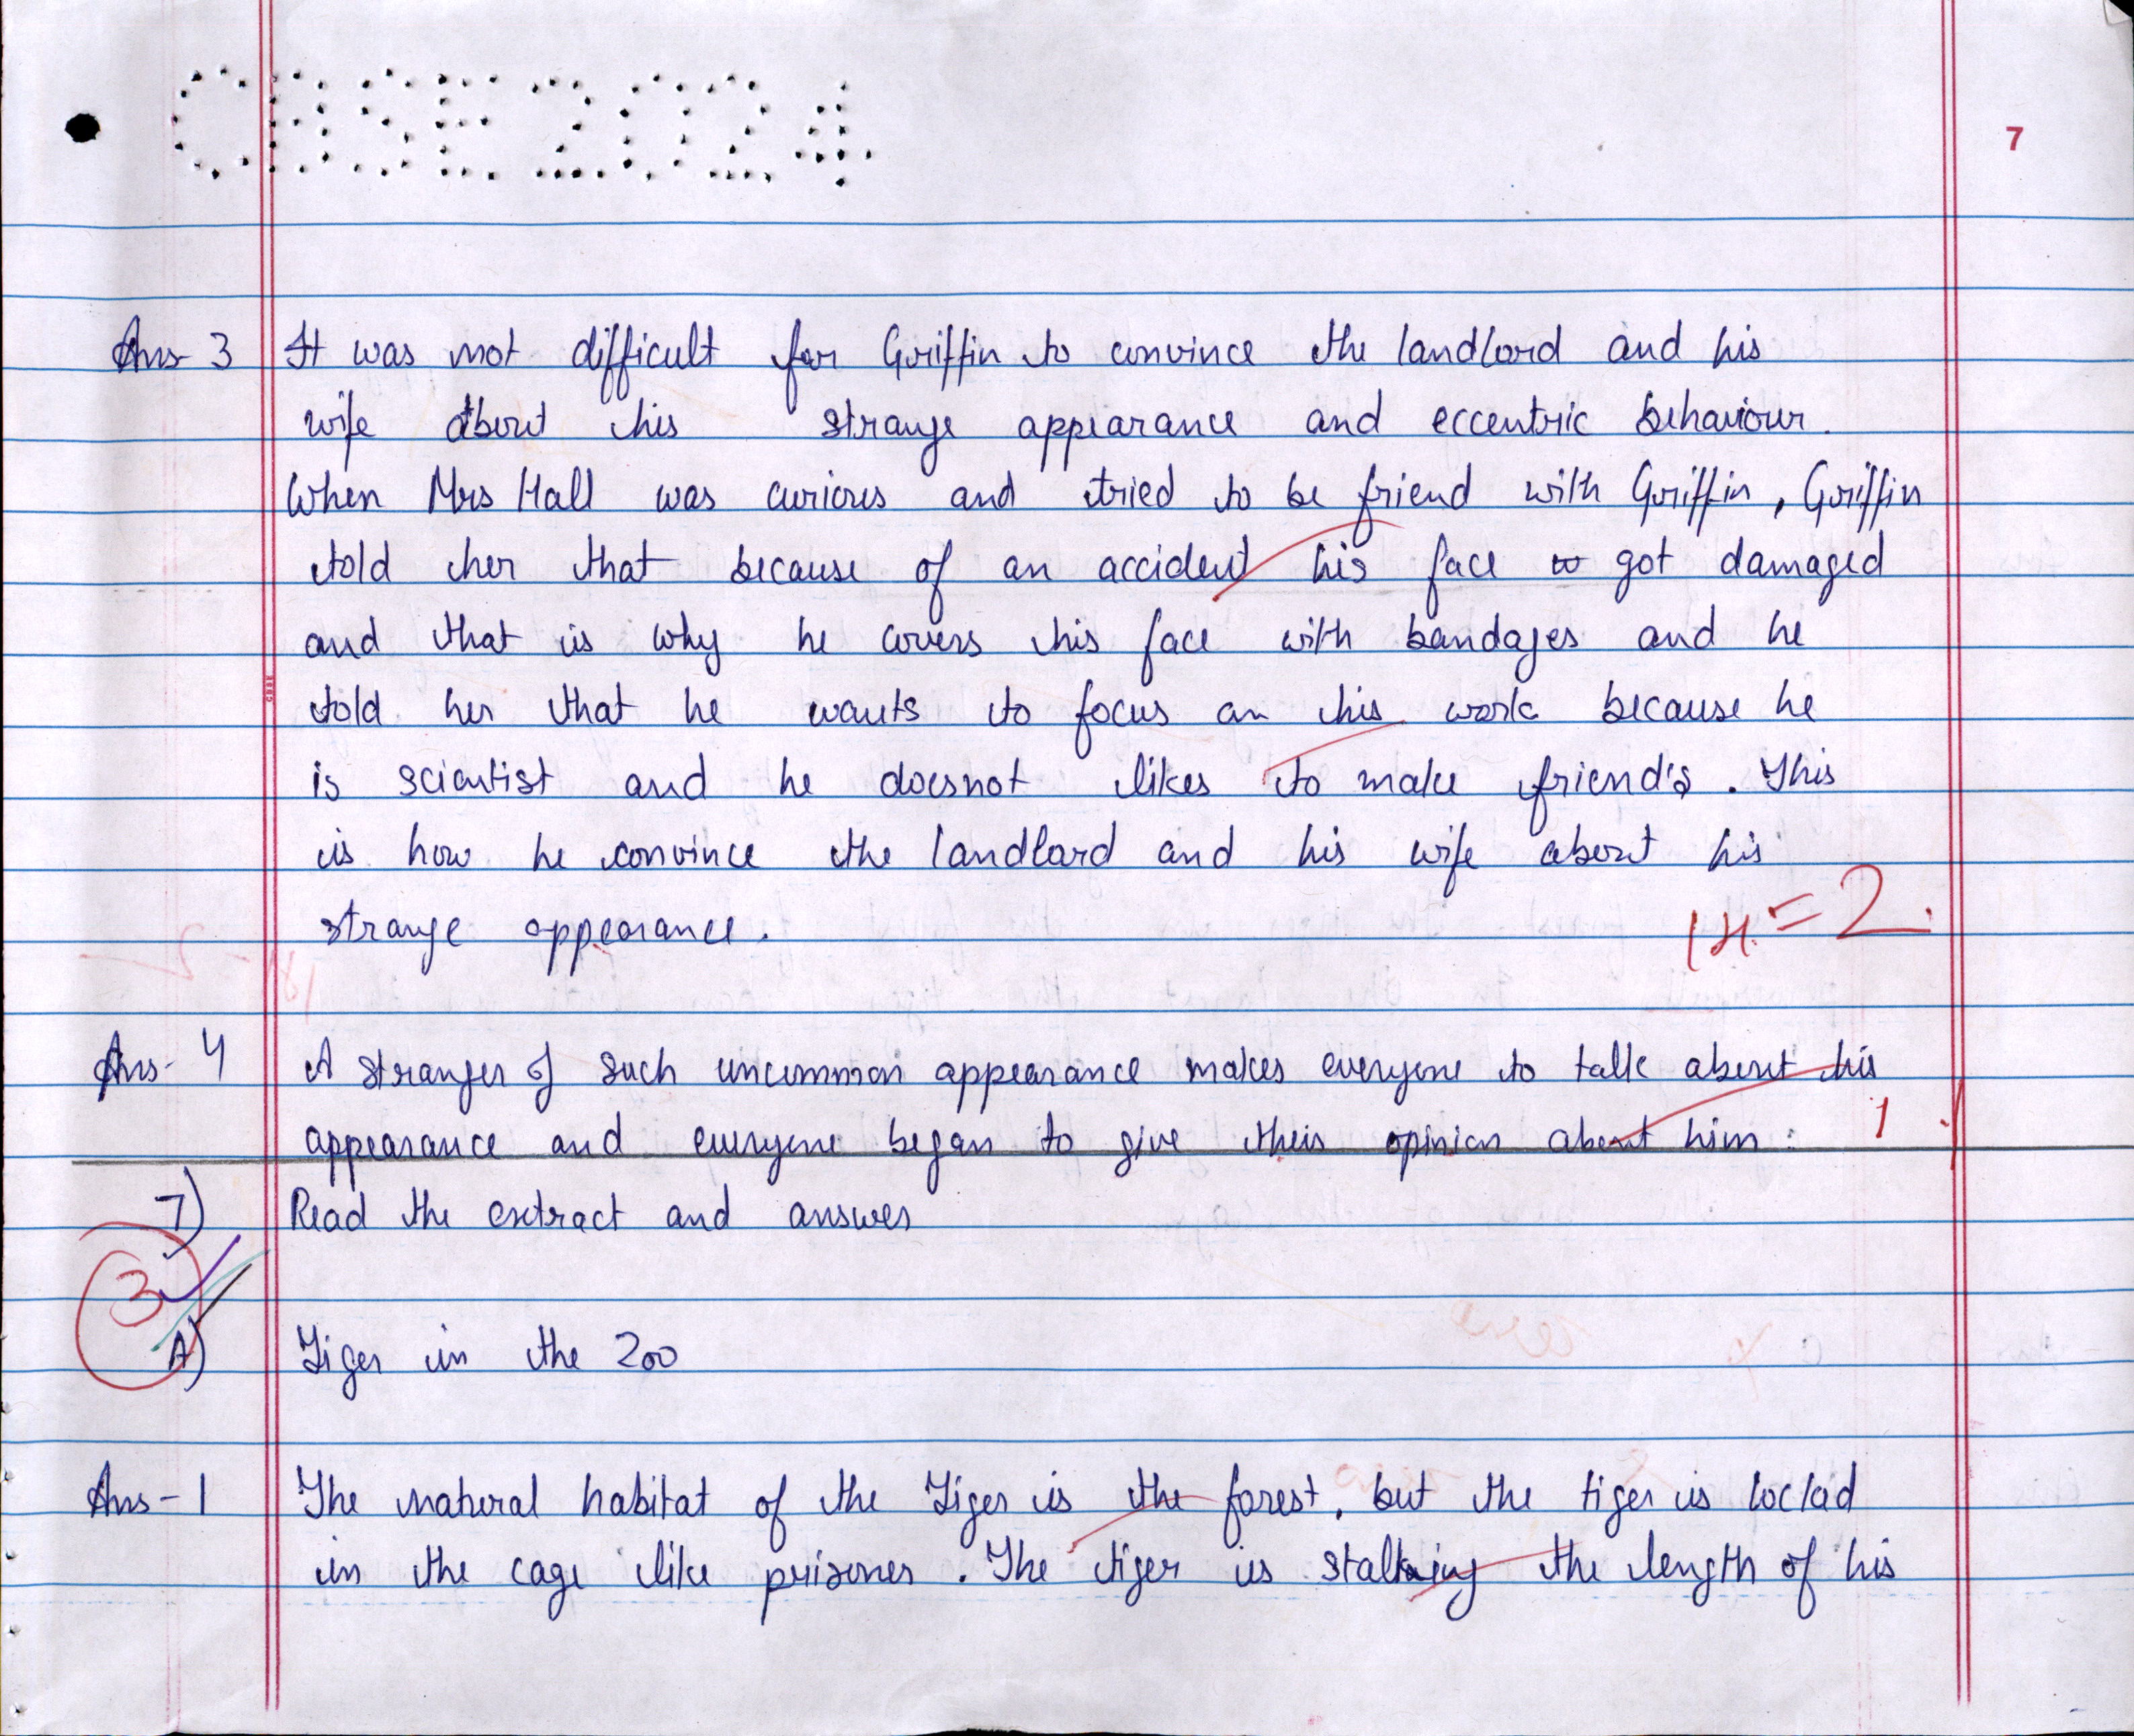 CBSE 2024
7
Ans-3 It was not difficult for Griffin to convince the landlord and his
wife about his strange appearance and eccentric behaviour.
When Mrs Hall was curious and tried to be friend with Griffin, Griffin
told her that because of an accident his face got damaged
and that is why he covers his face with bandages and he
told her that he wants to focus on his work because he
is scientist and he doesnot likes to make friend's. This
is how he convince the landlord and his wife about his
strange appearance.
1+1=2
Ans-4 A stranger of such uncommon appearance makes everyone to talk about his
appearance and everyone began to give their opinion about him. 1
7) Read the extract and answer
3
A) Tiger in the Zoo
Ans-1 The natural habitat of the Tiger is the forest, but the tiger is locked
in the cage like prisoner. The tiger is stalking the length of his